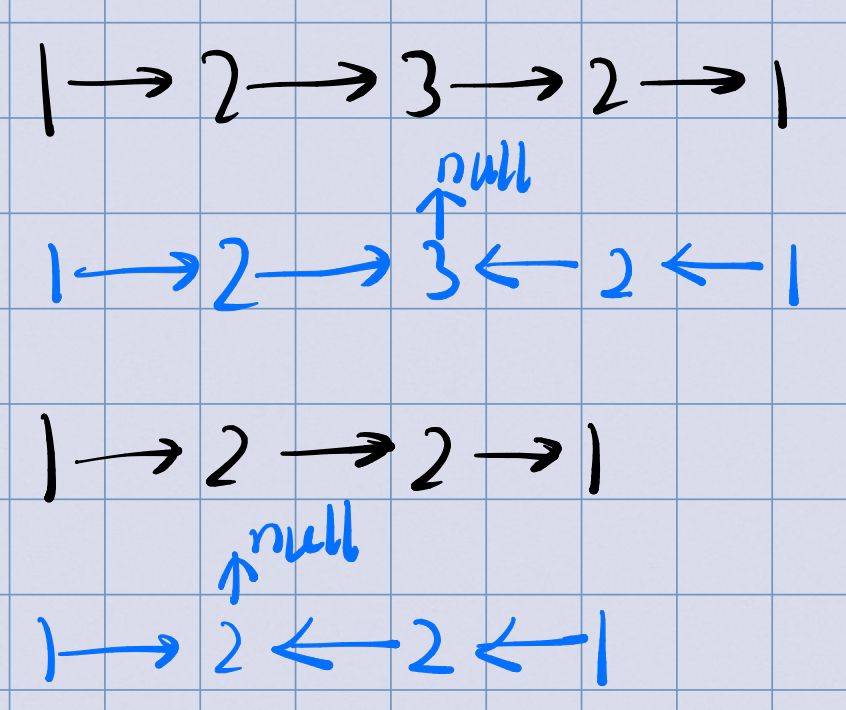 1 → 2 → 3 → 2 → 1
null
↑
1 → 2 → 3 ← 2 ← 1
1 → 2 → 2 → 1
null
↑
1 → 2 ← 2 ← 1